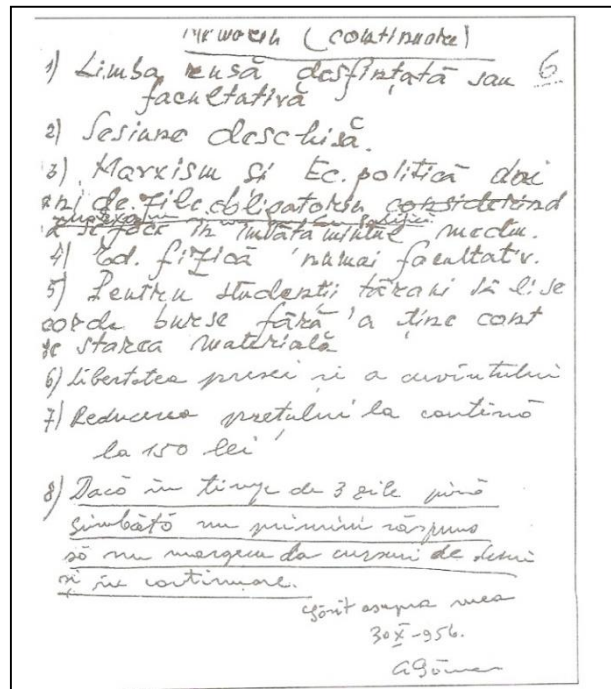 (continuare)
6
1) Limba rusă desfințată sau
facultativă
2) Sesiune deschisă.
3) Marxism și Ec. politică doi
ani de zile obligatoriu considerind
se face în învățămîntul mediu.
4) Ed. fizică numai facultativ.
5) Pentru studenții țărani să li se
acorde burse fără a ține cont
de starea materială
6) Libertatea presei și a cuvîntului
7) Reducerea prețului la cantină
la 150 lei
8) Dacă în timp de 3 zile pînă
sîmbătă nu primim răspuns
să nu mergem la cursuri de luni
și în continuare.
Găsit asupra mea
30 X-956.